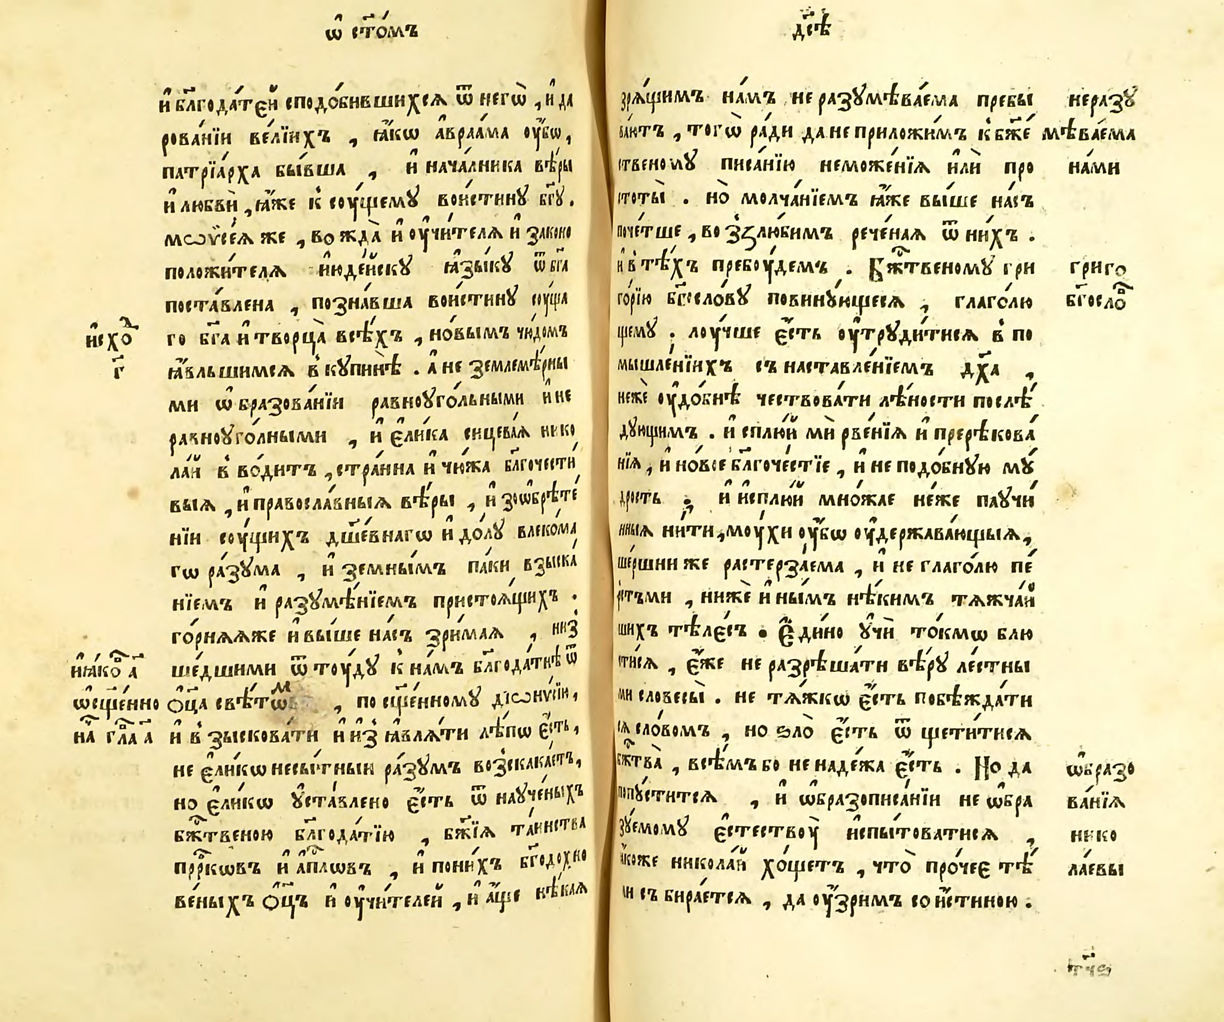 ѡ҆ ст҃о́мъ
и҆ бл҃года́тей сподо́бившихсѧ ѿ негѡ̀, и҆ да
рова́нїи ве́лїихъ, ꙗ҆́кѡ а҆враа́ма ᲂу҆́бѡ,
патрїа́рха бы́вша, и҆ нача́лника вѣ́ры
и҆ любвѝ, ꙗ҆́же к̾ сᲂу́щему вои́стину бг҃у.
мѡѷсе́ѧ же, вождѧ̀ и҆ ᲂу҆чи́телѧ и҆ законо
положи́телѧ и҆юде́йску ꙗ҆зы́ку ѿ бг҃а
поста́влена, позна́вша вои́стину сᲂу́ща
го бг҃а и҆ творца̀ всѣ́хъ, но́вымъ чи́домъ
и҆схо́
г҃
ꙗ҆́вльшимсѧ в̾ купинѣ̀. а҆ не землемѣ́рны
ми ѡ҆бразова́нїи равноᲂуго́льными и҆ не
равноᲂуго́лными, и҆ є҆ли́ка сицева́ѧ нико
ла́й в̾во́дитъ, стра́нна и҆ чю́жа бл҃гочести́
выѧ, и҆ правосла́вныѧ вѣ́ры, и҆ зѡ҆брѣ́те́
нїи сᲂу́щихъ дш҃е́внагѡ и҆ до́лу влеко́ма
гѡ ра́зума, и҆ земны́мъ па́ки взыска́
нїемъ и҆ разумѣ́нїемъ пристоѧ́щихъ.
го́рнѧѧже и҆ вы́ше на́съ зри́маѧ, низ̾
ше́дшими ѿтᲂу́ду к̾ на́мъ бл҃года́тнѣ ѿ
ѡ҆сщ҃е́нно
ѻ҆ц҃а свѣ́тѡм, по сщ҃е́нному дїѡни́сїи,
на̀ гл҃а а҃
и҆ в̾зыскова́ти и҆ и҆з̾ꙗвлѧ́ти лѣ́пѡ є҆́сть,
не є҆ли́кѡ несы́тныи ра́зумъ возскака́етъ,
но є҆ли́кѡ уста́влено є҆́сть ѿ науче́ныхъ
бж҃твеною бл҃года́тїю, бж҃їѧ та́инства
прⷪ҇ркѡвъ и҆ а҆пл҃ѡвъ, и҆ пони́хъ бг҃одохно
ве́ныхъ ѻ҆ц҃ъ и҆ ᲂу҆чи́телей, и҆ а҆́ще нѣ́каѧ
дс҃ѣ
зрѧ́щимъ на́мъ не разумѣва́ема пребы
ва́ютъ, тогѡ̀ ра́ди да не приложи́мъ к̾ бж҃е
ственому писа́нїю неможе́нїѧ и҆лѝ про
стоты̀. но̀ молча́нїемъ ꙗ҆́же вы́ше на́съ
поче́тше, воз̾люби́мъ рече́наѧ ѿ ни́хъ.
и҆ в̾ тѣ́хъ пребᲂу́демъ. Бж҃твеному гри
го́рїю бг҃осло́ву повину́ющесѧ, глаго́лю
щему. лᲂу́чше є҆́сть ᲂу҆труди́тисѧ в̾ по
мышле́нїихъ съ наставле́нїемъ дх҃а,
не́же ᲂу҆до́бнѣ чествова́ти лѣ́ности послѣ́
дующимъ. и҆ сплю́й мѝ рве́нїѧ и҆ пререкова́
нїѧ, и҆ но́вое бл҃гоче́стїе, и҆ не подо́бную му́
дрость, и҆ и҆сплю́й мно́жае не́же паучи́
нныѧ ни́ти, мᲂу́хи ᲂу҆́бѡ ᲂу҆держава́ющыѧ,
ше́ршни же растерза́ема, и҆ не глаго́лю пе́
рстъми, нижѐ и҆ны́мъ нѣ́кимъ тѧжча́й
шихъ тѣле́съ. Є҆ди́но учѝ то́кмѡ блю
сти́сѧ, є҆́же не разрѣша́ти вѣ́ру ле́стны
ми словесы̀. не тѧ́жкѡ є҆́сть побѣжда́ти
сѧ сло́вомъ, но ѕло̀ є҆́сть ѿщети́тисѧ
бж҃тва̀, всѣ́мъ бо не наде́жа є҆́сть. Но да
попу́стится, и҆ ѡ҆бразописа́нїи не ѡ҆бра
зу́емому є҆стествᲂу̀ и҆спы́товатисѧ,
ꙗ҆́коже никола́й хо́щетъ, что̀ про́чее тѣ́
ми събира́етсѧ, да ᲂу҆́зримъ со и҆́стиною.
неразу
мѣва́ема
на́ми
григо
бг҃осло
ѡ҆бразо
ва́нїѧ
нико
ла́евы